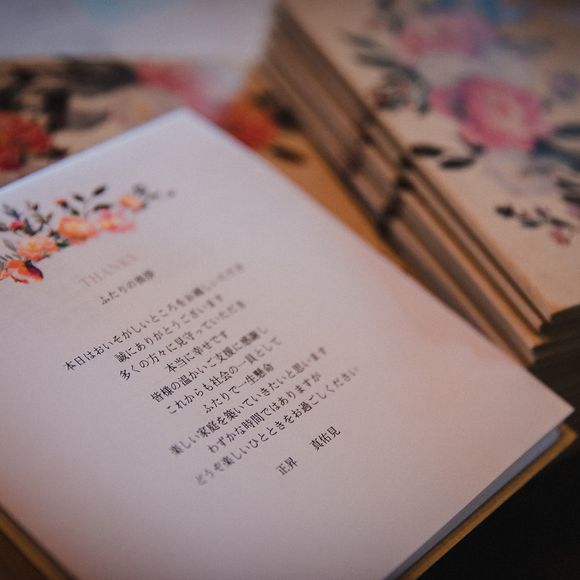 THANKS
ふたりの挨拶
本日はおいそがしいところをお越しいただき
誠にありがとうございます
多くの方々に見守っていただき
本当に幸せです
皆様の温かいご支援に感謝し
これからも社会の一員として
ふたりで一生懸命
楽しい家庭を築いていきたいと思います
わずかな時間ではありますが
どうぞ楽しいひとときをお過ごしください
正昇 真祐見